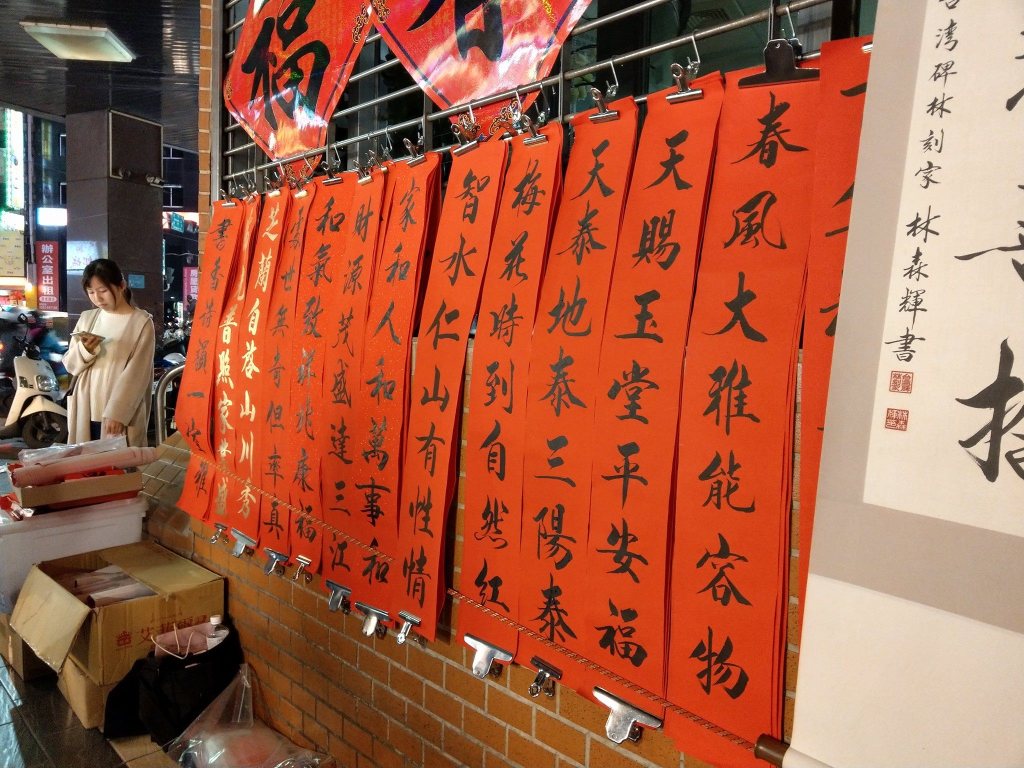 福
台湾碑林刻家 林森輝書
春風大雅能容物
天賜玉堂平安福
天泰地泰三陽泰
梅花時到自然紅
智水仁山有性情
家和人和萬事和
財源茂盛達三江
和氣致祥兆康福
世無奇但率真
芝蘭自山川秀
普照家
書香一雅
辦公室出租